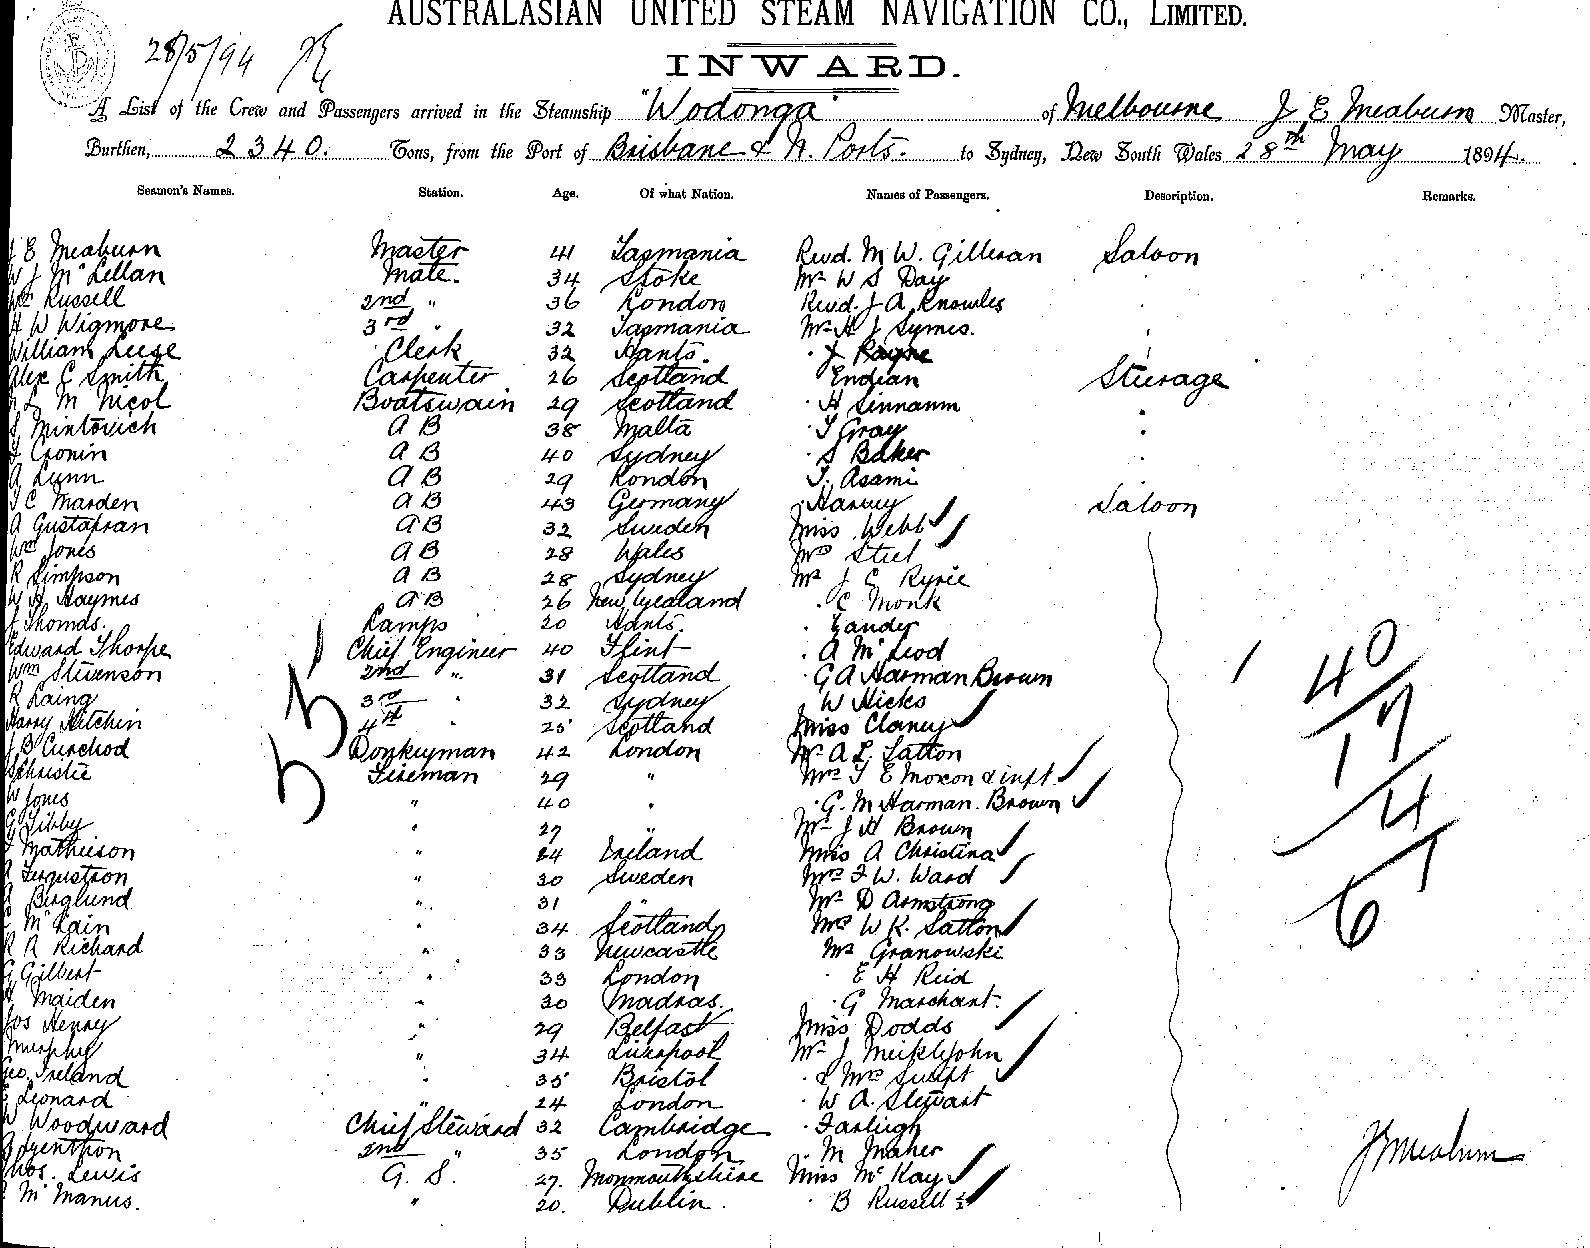 AUSTRALASIAN UNITED STEAM NAVIGATION CO., LIMITED.
28/5/94
INWARD.
A List of the Crew and Passengers arrived in the Steamship "Wodonga" of Melbourne J E Meaburn Master,
Burthen, 2340. Tons, from the Port of Brisbane & N. Ports. to Sydney, New South Wales 28th May 1894.
Seamen's Names. Station. Age. Of what Nation. Names of Passengers. Description. Remarks.
J E Meaburn Master 41 Tasmania Revd. M W. Gilleran Saloon
W J McLellan Mate. 34 Stoke Mr W S Day
Wm Russell 2nd " 36 London Revd. J A Knowles
H W Wigmore 3rd " 32 Tasmania Mr H J Symes.
William Leese Clerk 32 Hants. J Rayne
Alex C Smith Carpenter 26 Scotland Endian Steerage
M Nicol Boatswain 29 Scotland H Sinnamm
S Mintovich A B 38 Malta T Gray
Cronin A B 40 Sydney S Baker
A Lynn A B 29 London T. Asami
T C Marden A B 43 Germany Harvey Saloon
A Gustafsan A B 32 Sweden Miss Webb
Wm Jones A B 28 Wales Mrs Steel
R Simpson A B 28 Sydney Mr J C Ryrie
W H Haymes A B 26 New Zealand C Monk
J Thomas. Lamps 20 Hants. Lander
Edward Thorpe Chief Engineer 40 Flint A McLeod
Wm Stevenson 2nd " 31 Scotland G A Harman Brown
R Laing 3rd " 32 Sydney W Hicks
Harry Hitchin 4th " 25 Scotland Miss Clancy
J B Curchod Donkeyman 42 London Mr A L. Satton
Christie Fireman 29 " Mrs T E Moxon & inft
W Jones " 40 " G. M Harman. Brown
Tibby " 27 " Mr J H Brown
Mathieson " 24 Ireland Miss A Christina
Fergustson " 30 Sweden Mrs F W. Ward
Berglund " 31 " Mr D Armstrong
McLain " 34 Scotland Mrs W K. Satton
R A Richard " 33 Newcastle Mr Granowski
G Gilbert " 33 London E H Reid
Maiden " 30 Madras. G Marchant.
Jos Henry " 29 Belfast Miss Dodds
Murphy " 34 Liverpool Mr J Meiklejohn
Geo. Ireland " 35 Bristol & Mrs Swift
Leonard " 24 London W A. Stewart
W Woodward Chief Steward 32 Cambridge Farleigh
2nd " 35 London M Maher
Lewis G. S. 27. Monmouthshire Miss McKay
McManus. " 20. Dublin. B Russell ½
1
55
1
40/17/4/1
6
J E Meaburn